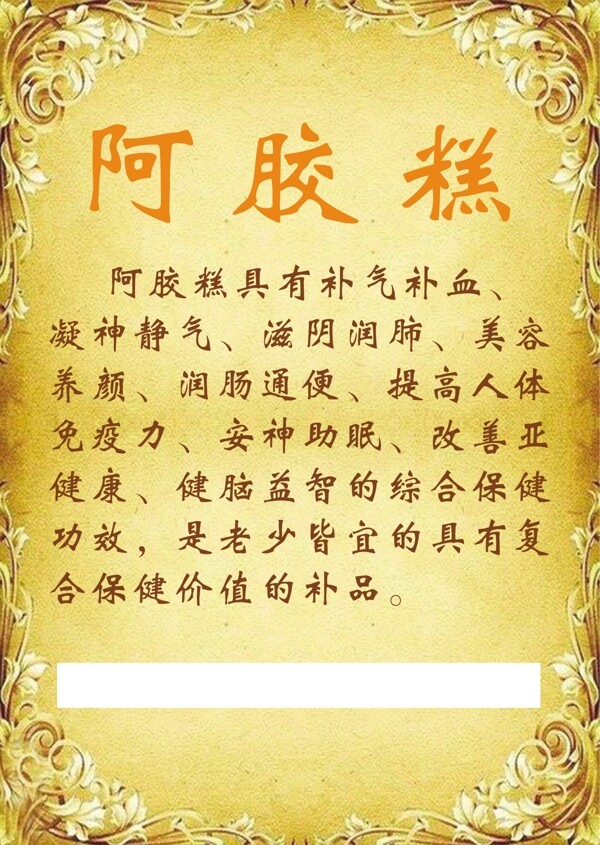 阿胶糕
阿胶糕具有补气补血、
凝神静气、滋阴润肺、美容
养颜、润肠通便、提高人体
免疫力、安神助眠、改善亚
健康、健脑益智的综合保健
功效，是老少皆宜的具有复
合保健价值的补品。